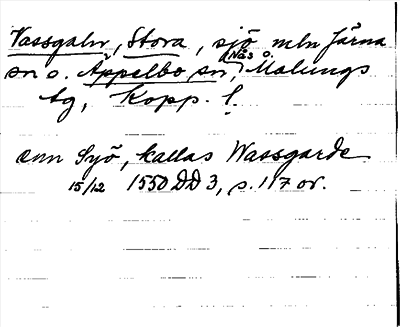 Vassgalv, Stora, sjö mln Järna
sn o. Äppelbo sn, Näs o. Malungs
tg, Kopp. l.
enn Syö, kallas Wassgarde
15/12 1550 DD 3, s. 117 or.